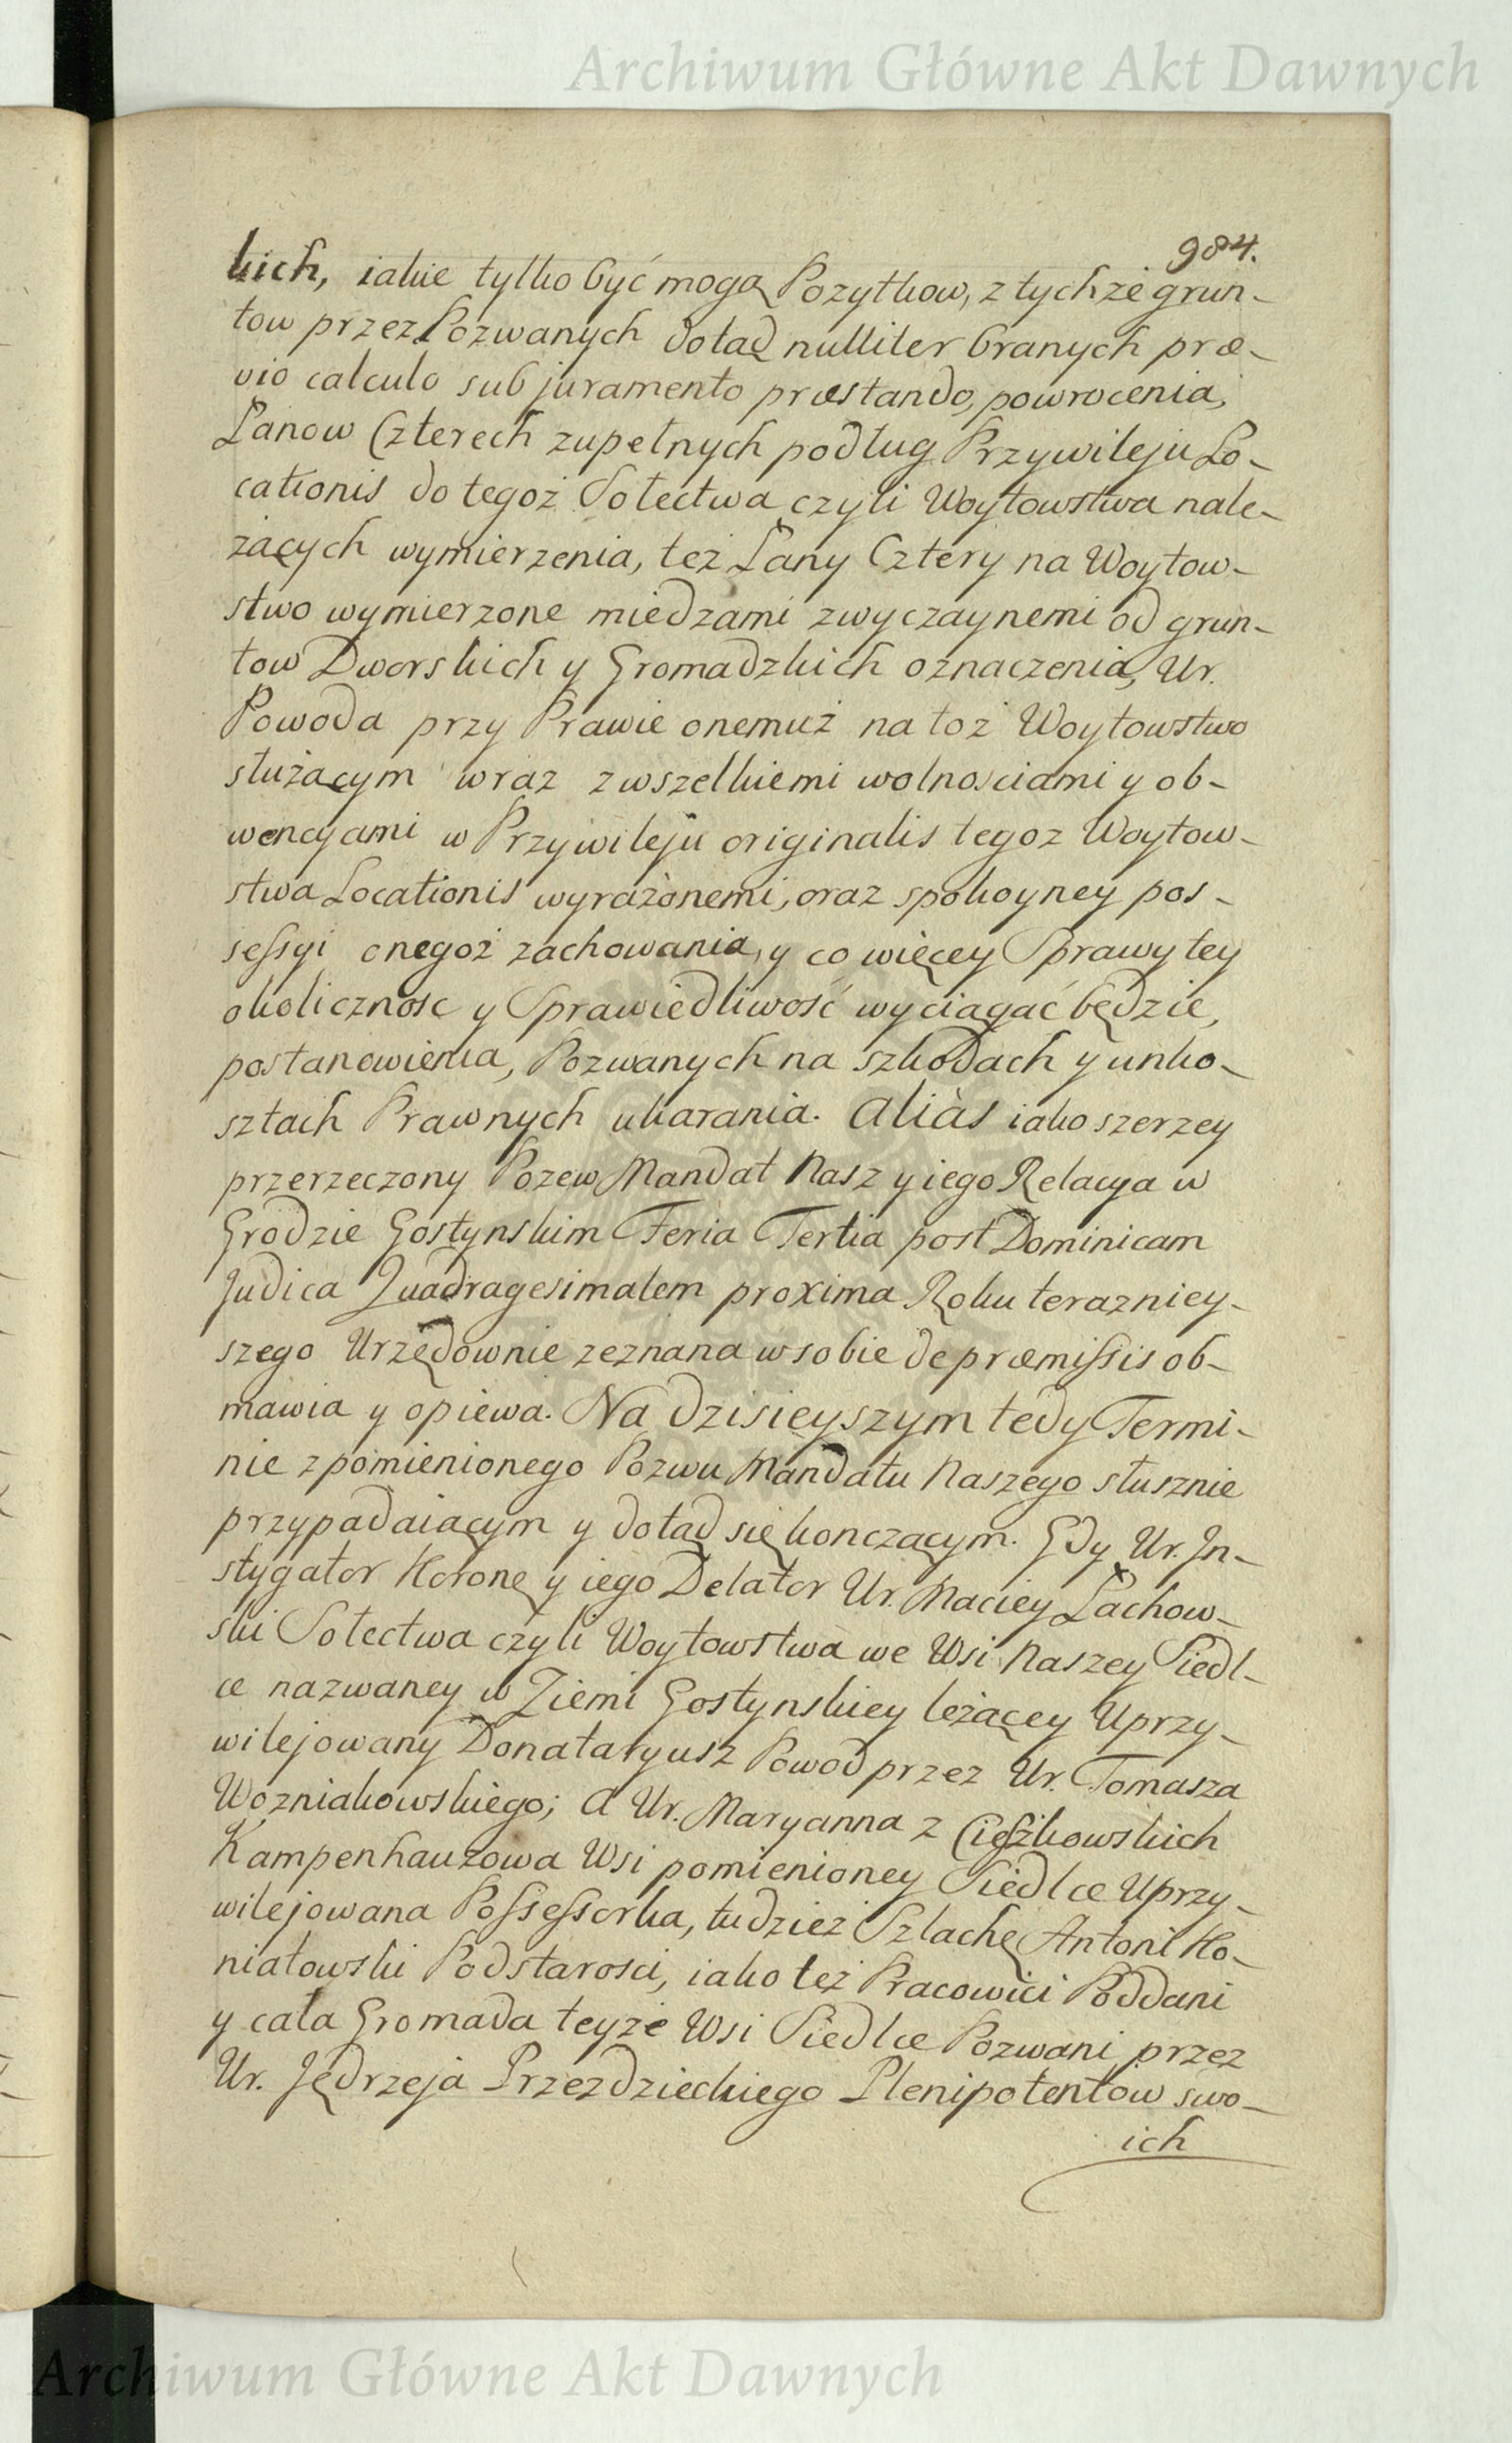 Archiwum Główne Akt Dawnych
984.
kich, iakie tylko być mogą Pozytkow, z tychże grun-
tow przez Pozwanych dotąd nulliter branych præ-
vio calculo sub juramento præstando, powrocenia,
Łanow Czterech zupełnych podług Przywileju Lo-
cationis do tegoż Sołectwa czyli Woytowstwa nale-
żących wymierzenia, też Łany Cztery na Woytow-
stwo wymierzone miedzami zwyczaynemi od grun-
tow Dworskich y Gromadzkich oznaczenia, Ur.
Powoda przy Prawie onemuż na toż Woytowstwo
służącym wraz z wszelkiemi wolnosciami y ob-
wencyami w Przywileju originalis tegoz Woytow-
stwa Locationis wyrażonemi, oraz spokoyney pos-
sessyi onegoż zachowania, y co więcey Sprawy tey
okolicznosc y Sprawiedliwość wyciągać będzie,
postanowienia, Pozwanych na szkodach y unko-
sztach Prawnych ukarania. Aliàs iako szerzey
przerzeczony Pozew Mandat Nasz y iego Relacya w
Grodzie Gostynskim Feria Tertia post Dominicam
Judica Quadragesimalem proxima Roku terazniey-
szego Urzędownie zeznana w sobie de præmissis ob-
mawia y opiewa. Na dzisieyszym tedy Termi-
nie z pomienionego Pozwu Mandatu Naszego słusznie
przypadaiącym y dotąd się konczącym. Gdy Ur. In-
stygator Koronę y iego Delator Ur. Maciey Łachow-
ski Sołectwa czyli Woytowstwa we Wsi Naszey Siedl-
ce nazwaney w Ziemi Gostynskiey leżącey Uprzy-
wilejowany Donataryusz Powod przez Ur. Tomasza
Wozniakowskiego; A Ur. Maryanna z Cieszkowskich
Kampenhauzowa Wsi pomienioney Siedlce Uprzy-
wilejowana Possessorka, tudzież Szlachę Antoni Ko-
niatowski Podstarosci, iako też Pracowici Poddani
y cała Gromada teyże Wsi Siedlce Pozwani przez
Ur. Jędrzeja Przezdzieckiego Plenipotentow swo-
ich
Archiwum Główne Akt Dawnych